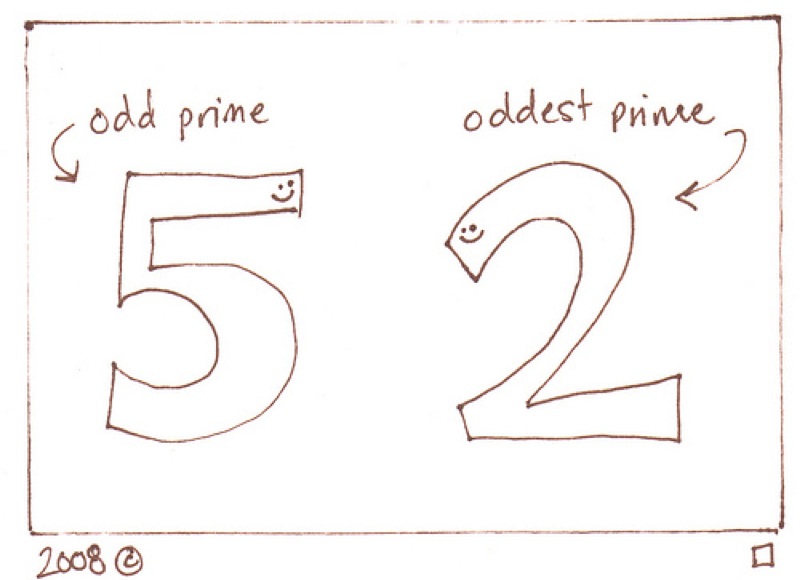 odd prime
oddest prime
5
2
2008 ©